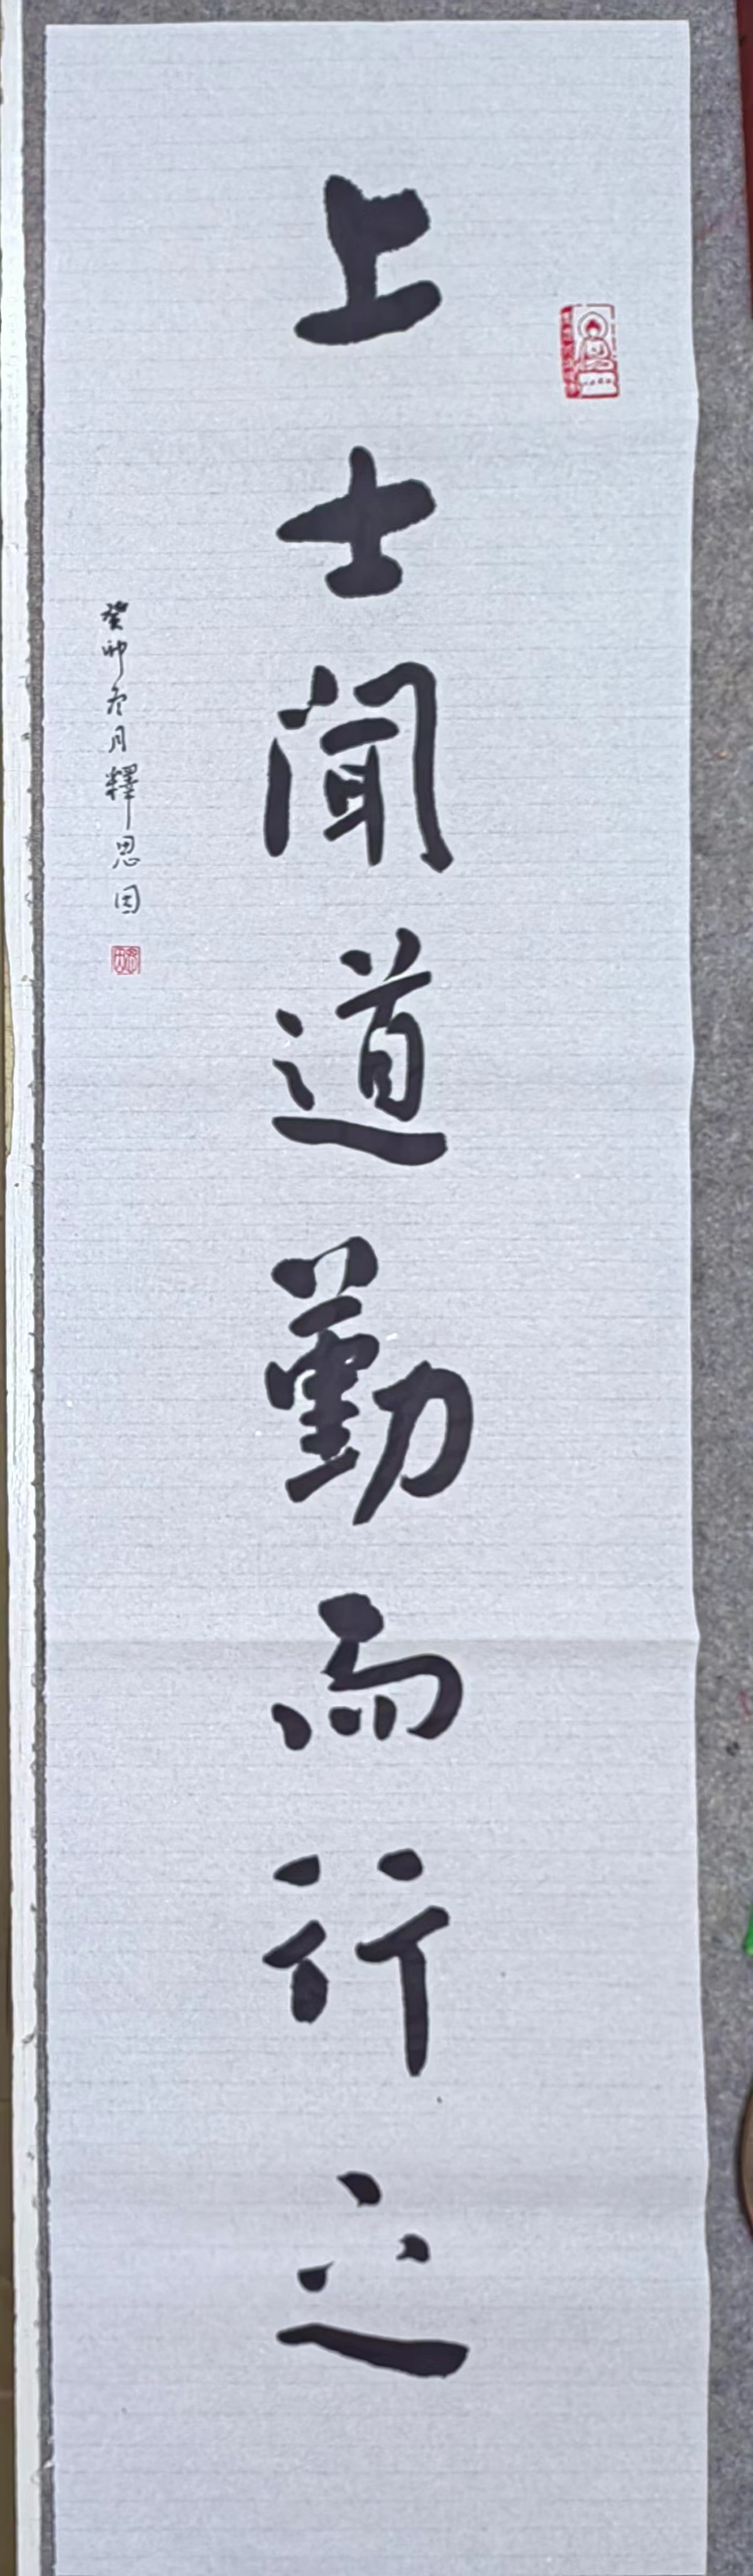 上士聞道勤而行之
癸卯冬月釋思因